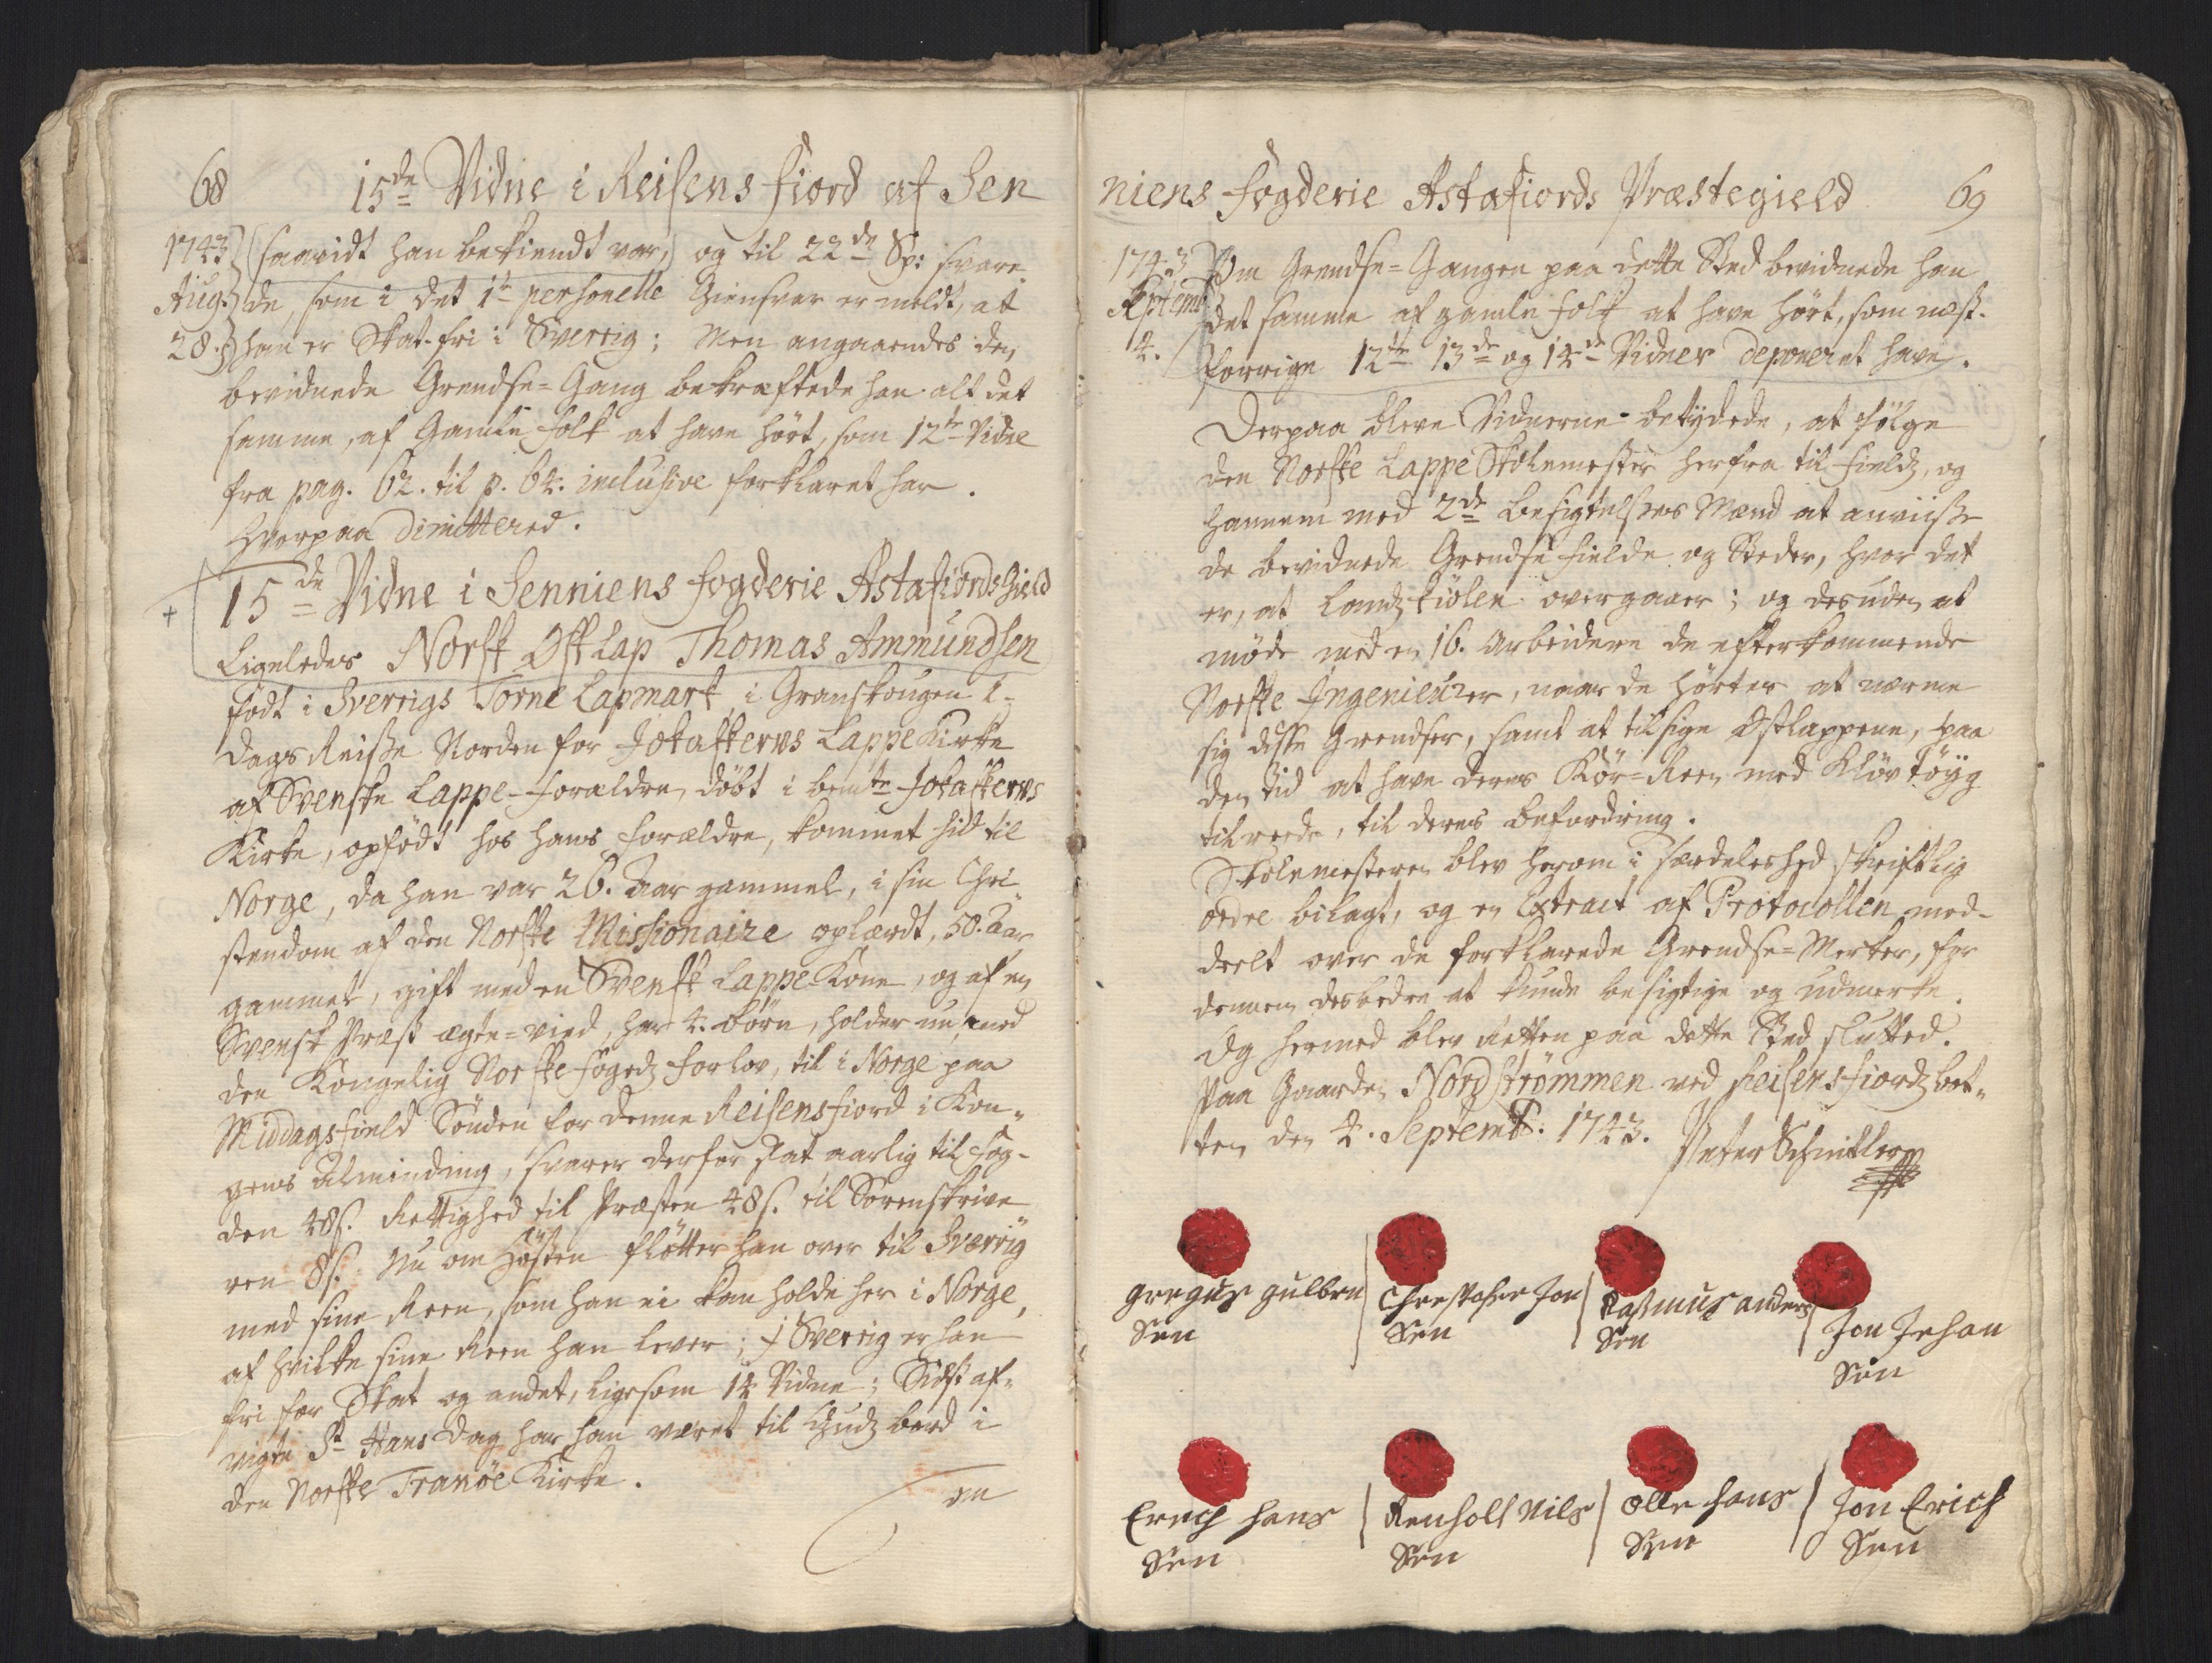 68 15de Vidne i Reisens fiord af Sen
1743 (saavidt han bekiendt var,) og til 22de Sp: svare
Aug: de, som i det 1te personelle Giensvar er meldt, at
28. han er Skat-fri i Sverrig; Men angaaendes den
bevidnede Grendse-Gang bekræftede han alt det
samme, af Gamle folk at have hört, som 12te Vidne
fra pag. 62. til p. 64. inclusive forklaret har.
Hvorpaa dimittered.
+ 15de Vidne i Senniens fogderie Astafiords Gield
Ligeledes Norsk Öst Lap Thomas Ammundsen
födt i Sverrigs Torne Lapmark, i Granskougen 1-
dags Reise Norden for Jokaskerws Lappe Kirke
af Svenske Lappe-forældre, döbt i bemte Jokaskerws
Kirke, opfödt hos hans forældre, kommet hid til
Norge, da han var 26. Aar gammel, i sin Chri-
stendom af den Norske Missionaire oplærdt, 50. Aar
gammel, gift med en Svensk Lappe Kone, og af en
Svensk Præst ægte-vied, har 4. börn, holder nu, med
den Kongelig Norske fogeds forlov, til i Norge paa
Middagsfield Sönden for denne Reisensfiord i Kon-
gens Alminding, svarer derfor skat aarlig til Fog-
den 48 s. Rettighed til Præsten 48 s. til Sorenskrive
ren 8 s. Nu om Hösten flötter han over til Sverrig
med sine Reen, som han ei kan holde her i Norge,
af hvilke sine Reen han lever; i Sverrig er han
fri for Skat og andet, ligesom 14 Vidne; Sidst af-
vigte St Hans dag har han været til Guds bord i
den Norske Tranöe Kirke.
Om
niens fogderie Astafiords Præstegield 69
1743 Om Grendse-Gangen paa dette Sted bevidnede han
Septemb: det samme af gamle folk at have hört, som næst-
4. forrige 12te 13de og 14de Vidner deponeret have.
Derpaa bleve Vidnerne betydede, at fölge
den Norske Lappe Skolemester herfra til fields, og
hannem med 2de Besigtelses Mænd at anviise
de bevidnede Grendse fielde og Steder, hvor det
er, at Lands kiölen overgaaer; og desuden at
möde med en 16. Arbeidere de efterkommende
Norske Ingenieurer, naar de hörtes at nærme
sig disse Grendser, samt at tilsige Östlappene, paa
den tid at have deres Kör-Reen med Klöv töyg
til reede, til deres befordring.
Skolemesteren blev herom i særdeleshed skriftlig
ordre bilagt, og en Extract af Protocollen med-
deelt over de forklarede Grendse-Merker, for
dennem desbedre at kunde besigtige og udmerke.
Og hermed blev Retten paa dette Sted slutted.
Paa Gaarden Nordströmmen ved Reisensfiords bot-
ten den 4. Septemb: 1743. Peter Schnitler
gregus gulbrn
Sen
Chrestofer Jon
Sen
Rasmus anders
Sen
Jon Johan
Sen
Erich hans
Sen
Renholt Nils
Sen
olle hans
Sen
Jon Erich
Sen